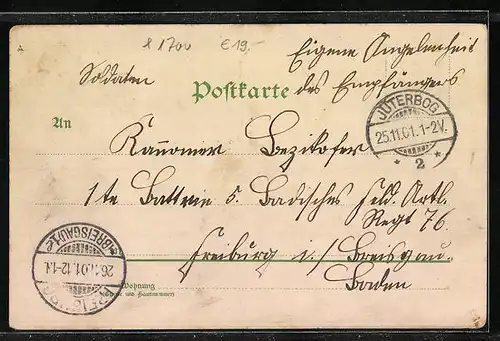 & 1700 €19.-
Eigene Angelegenheit
Soldaten
Postkarte
des Empfängers
JÜTERBOG
25.11.01.1-2V.
* 2 *
An
Kanonier
1te Battrie 5. Badisches Feld. Artl.
Regt 76.
Freiburg i/ Breisgau
Baden
(BREISGAU) 1
26.11.01.12-1
Wohnung